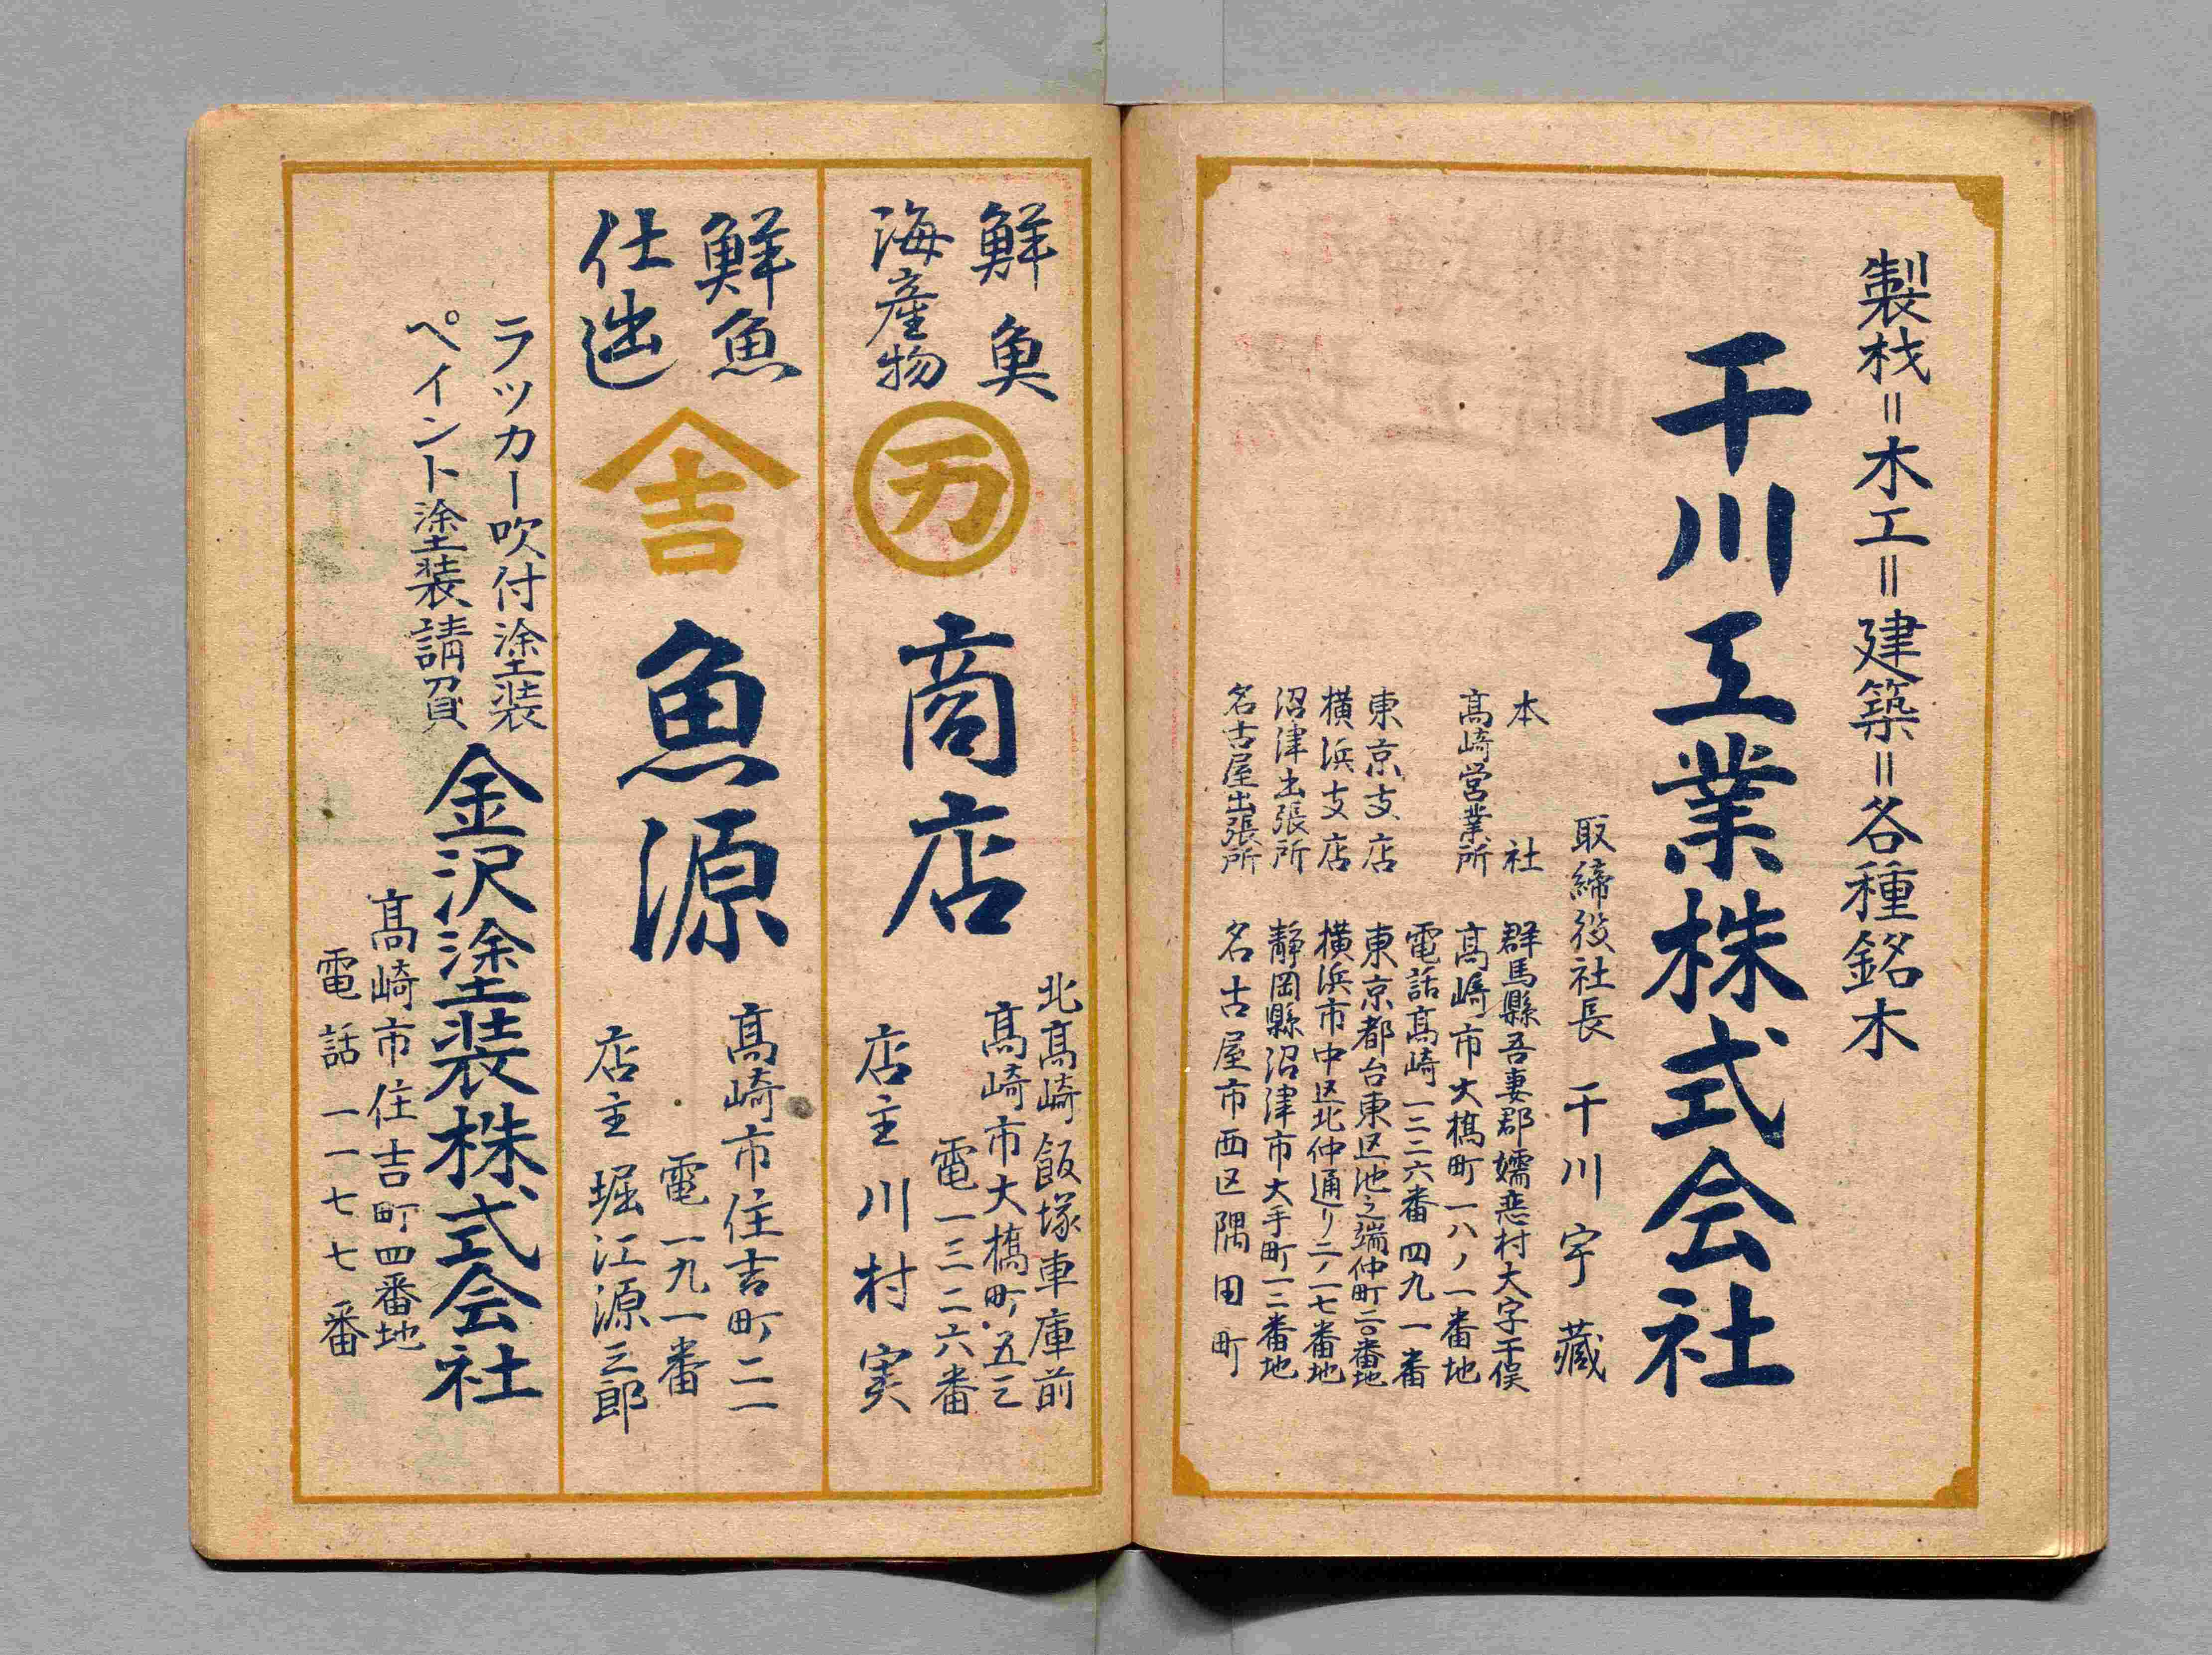 製材＝木工＝建築＝各種銘木
干川工業株式会社
取締役社長　干川宇蔵
本社　群馬縣吾妻郡嬬恋村大字干俣
髙崎営業所　髙崎市大橋町一八ノ一番地
電話髙崎一三二六番四九一番
東京支店　東京都台東区池之端仲町二〇番地
横浜支店　横浜市中区北仲通り二ノ一七番地
沼津出張所　静岡縣沼津市大手町一二番地
名古屋出張所　名古屋市西区隅田町
鮮魚
海産物
万
商店
北髙崎飯塚車庫前
髙崎市大橋町五三
電一三二六番
店主川村実
鮮魚
仕出
吉
魚源
髙崎市住吉町二一
電一九一番
店主　堀江源三郎
ラッカー吹付塗装
ペイント塗装請負
金沢塗装株式会社
髙崎市住吉町四番地
電話一一七七番